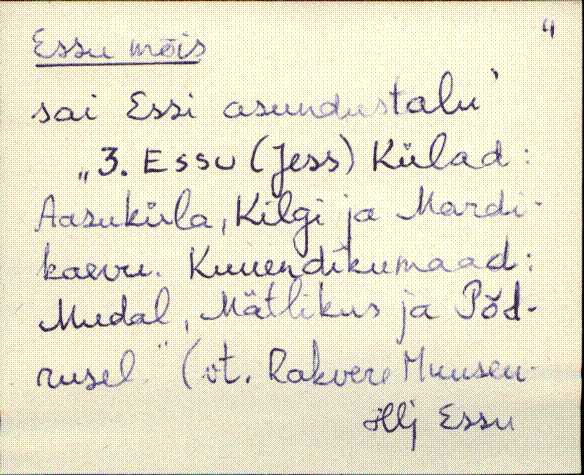 4
Essu mõis
sai Essi asundustalu'
"3. Essu (Jess) Külad:
Aasuküla, Kilgi ja Mardi-
kaevu. Kuuendikumaad:
Mudal, Mätlikus ja Põd-
rusel." (vt. Rakvere Muuseu-
Hlj Essu